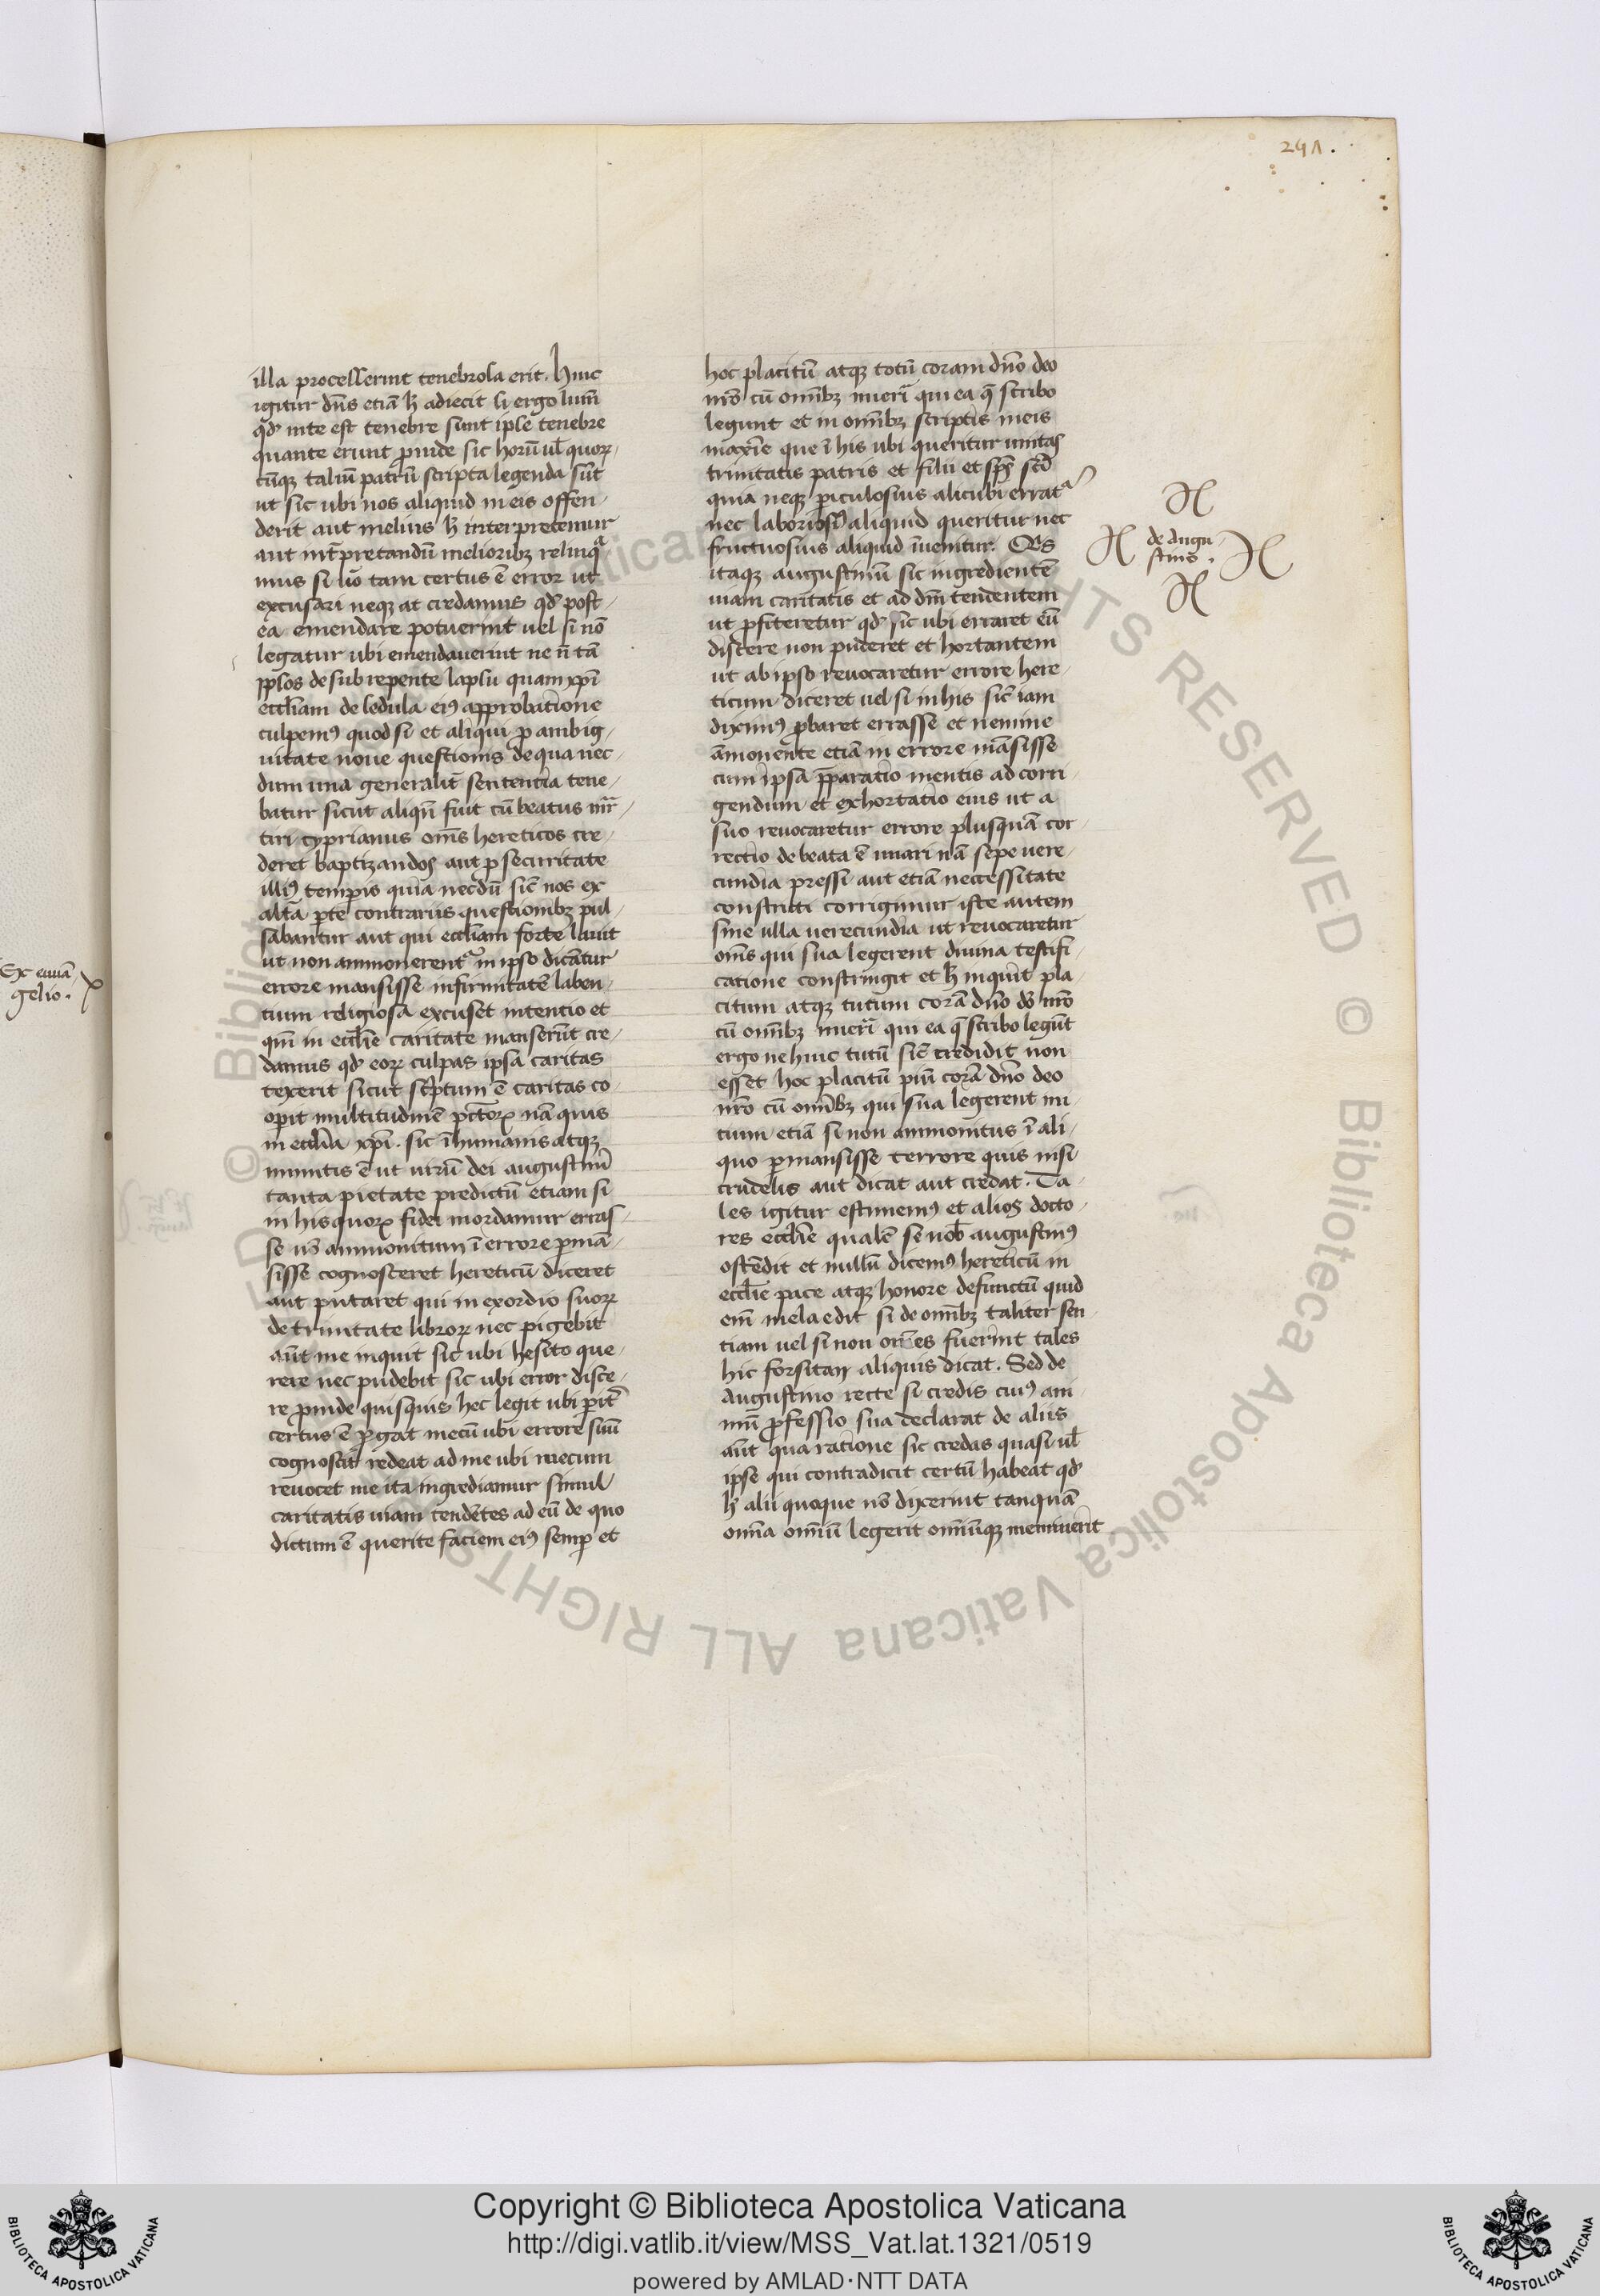 241.
illa processerint tenebrosa erit. Huic
igitur dn̄s etiā h̄ adiecit si ergo lum̄
qd' inte est tenebre sunt ipse tenebre
quante erunt ꝓinde sic horū ul̄ quoꝝ-
cūqꝫ taliū patrū scripta legenda sūt
ut sic ubi nos aliquid in eis offen-
derit aut melius h̄ interpretemur
aut int̄pretandū melioribꝫ relinqᵃ
mus si uō tam certus ē error ut
excusari neqꝫ at credamus qd' post-
ea emendare potuerint uel si nō
legatur ubi emendauerint ne ñ tā
ip̄sos de sub repente lapsu quam xp̄i
eccl̄iam de sedula eiꝰ approbatione
culpemꝰ quod si et aliqui ꝓ ambig-
uitate noue questionis de qua nec-
dum una generalit̄ sententia tene-
batur sicut aliqn̄ fuit cū beatus mr̄-
tiri cyprianus om̄s hereticos cre-
deret baptizandos aut ꝓ securitate
illiꝰ temꝑis quia necdū sic̄ nos ex
alt̄a ꝑte contrariis questionibꝫ pul-
sabantur aut qui eccl̄iam forte latuit
ut non ammonerentᷣ in ipso dicātur
errore mansisse infirmitatē laben-
tium religiosā excuset intentio et
qm̄ in eccl̄ie caritate manserūt cre-
damus qd' eoꝝ culpas ipsa caritas
texerit sicut sc̄ptum ē caritas co-
oꝑit multitudinē pctōꝝ nā quis
in eccl̄ia xp̄i. sic ī humanis atqꝫ
inmitis ē ut uirū dei augustinū
tanta pietate predictū etiam si
in his quoꝝ fidei mordamur erras-
se nō ammonitum ī errore ꝑmā-
sisse cognosceret hereticū diceret
aut putaret qui in exordio suoꝝ
de trinitate libroꝝ nec pigebit
aūt me inquit sic ubi hesito que-
rere nec pudebit sic ubi error disce-
re ꝓinde quisquis hec legit ubi ꝑit̄
certus ē ꝑgat mecū ubi errore suū
cognoscit redeat ad me ubi mecum
reuocet me ita ingrediamur simul
caritatis uiam tendētes ad eū de quo
dictum ē querite faciem eiꝰ semꝑ et
hoc placitū atqꝫ totū coram dn̄o deo
nrō cū omībꝫ inuerī qui ea q̄ scribo
legunt et in omībꝫ scriptis meis
maxīe que ī his ubi queritur unitas
trinitatis patris et filii et sp̄s sc̄i
quia neqꝫ ꝑiculosius alicubi erratᷣ
nec laboriosiꝰ aliquid queritur nec
fructuosius aliquid īuenitur. Qis
itaqꝫ augustinū sic ingredientē
uiam caritatis et ad dm̄ tendentem
ut ꝓfiteretur qd' sic ubi erraret eū
discere non puderet et hortantem
ut ab ipso reuocaretur errore here-
ticum diceret uel si in his sic̄ iam
diximꝰ ꝓbaret errasse et nemine
āmonente etiā in errore māsisse
cum ipsa p̄paratio mentis ad corri-
gendum et exhortatio eius ut a
suo reuocaretur errore plusquā cor-
rectio de beata ē inuari nā sepe uere-
cundia pressi aut etiā neccessitate
constricti corrigimur iste autem
sine ulla uerecundia ut reuocaretur
om̄s qui sua legerent diuina testifi-
catione constringit et h̄ inquit pla-
citum atqꝫ tutum corā dn̄o dō nrō
cū omībꝫ inuerī qui ea q̄ scribo legūt
ergo ne huic tutū sic̄ credidit non
esset hoc placitū piū corā dn̄o deo
nrō cū omībꝫ qui sua legerent ini-
tium etiā si non ammonitus ī ali-
quo ꝑmansisse terrore quis nisi
crudelis aut dicat aut credat. Ta-
les igitur estimemꝰ et alios docto-
res eccl̄ie qualē se nob̄ augustinꝰ
ostēdit et nullū dicemꝰ hereticū in
eccl̄ie pace atqꝫ honore defunctū quid
em̄ me laedit si de omībꝫ taliter sen-
tiam uel si non om̄es fuerint tales
hic forsitan aliquis dicat. Sed de
Augustino recte si credis cuiꝰ ani-
mū ꝓfessio sua declarat de aliis
aūt qua ratione sic credas quasi ul̄
ipse qui contradicit certū habeat qd'
h̄ alii quoque nō dixerint tanquā
omīa omīū legerit omīūqꝫ meminerit
de Augu-
stino.
Ex euuā
gelio.
Copyright © Biblioteca Apostolica Vaticana
http://digi.vatlib.it/view/MSS_Vat.lat.1321/0519
powered by AMLAD·NTT DATA
BIBLIOTECA APOSTOLICA VATICANA
BIBLIOTECA APOSTOLICA VATICANA
© Biblioteca Apostolica Vaticana ALL RIGHTS RESERVED